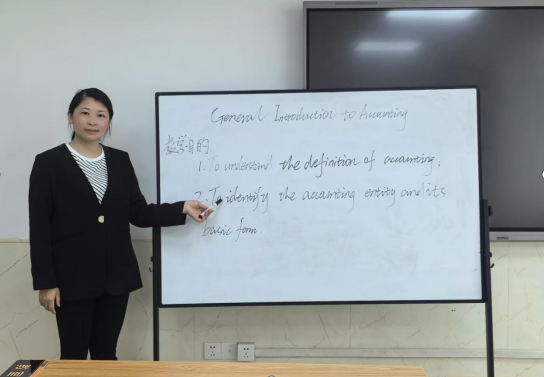 General Introduction to Accounting
教学目的:
1. To understand the definition of accounting.
2. To identify the accounting entity and its
basic form